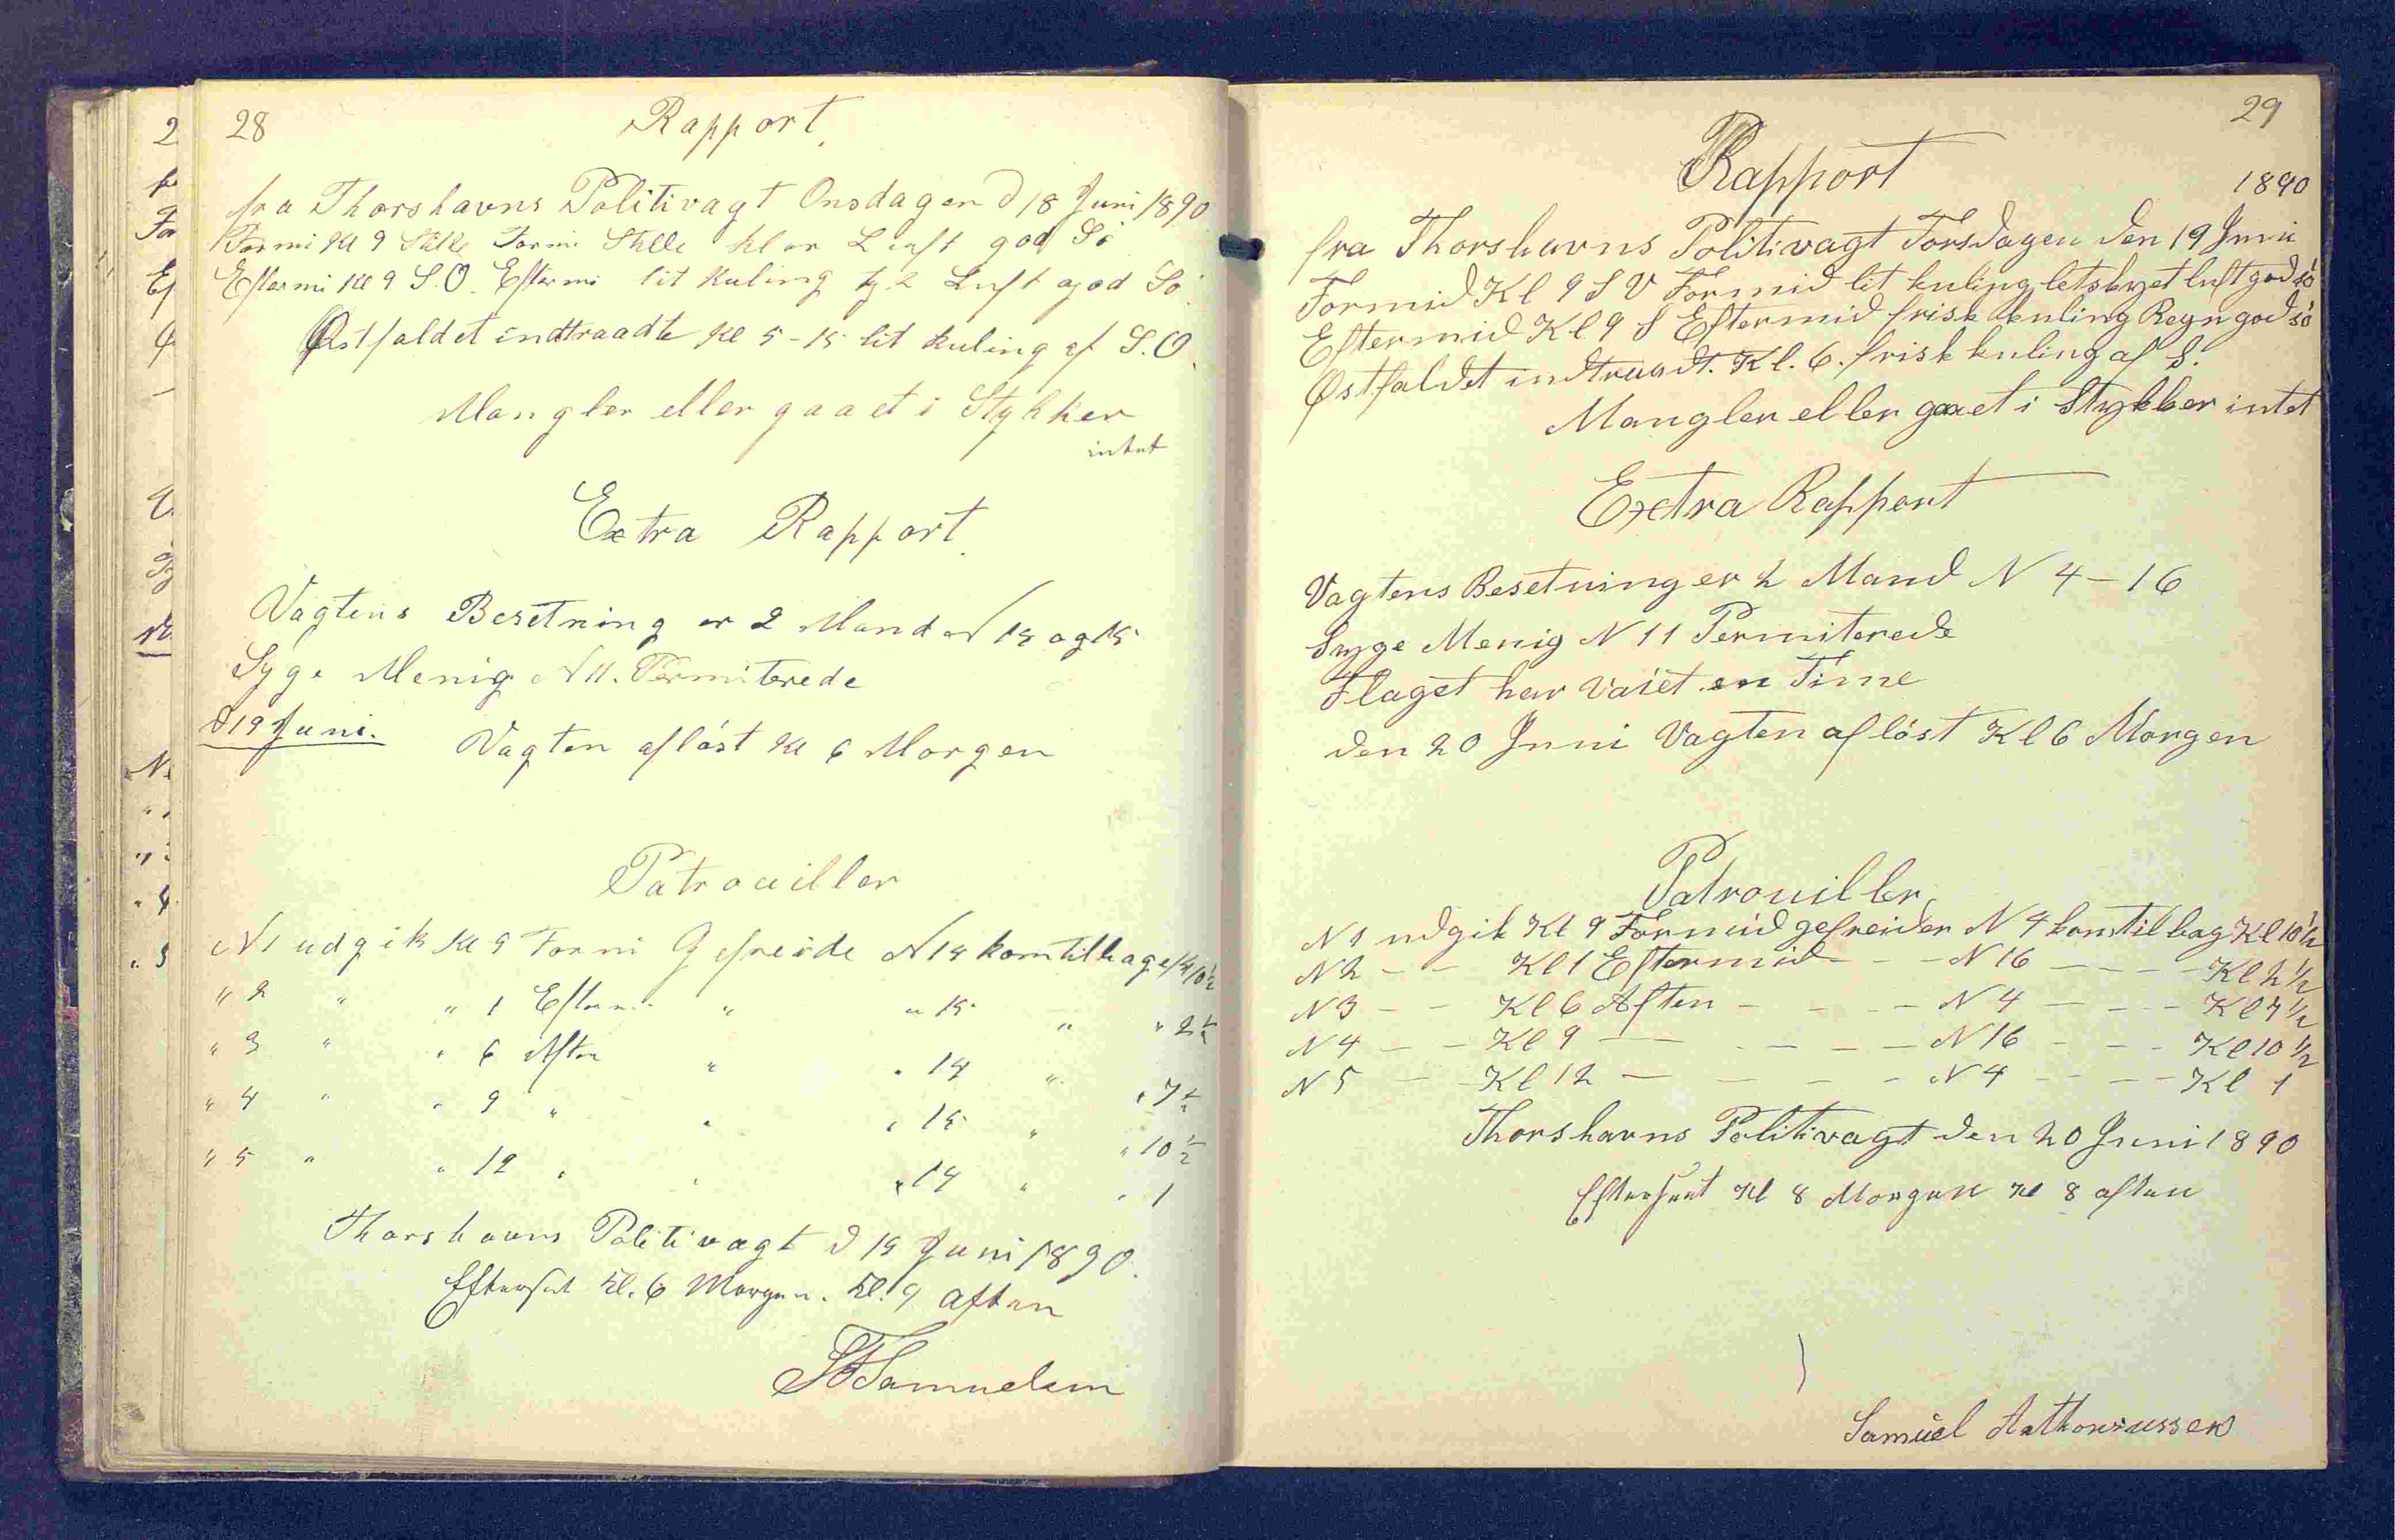 28
Rapport.
fra Thorshavns Politivagt Onsdagen d 18 Juni 1890
Formi Kl 9 Stille Formi Stille klar Luft god Sö
Eftermi Kl 9 S.O. Eftermi lit kuling Luft god Sö.
Østfaldet indtraadte Kl 5-15 lit kuling af S.O.
Mangler eller gaaet i Stykker
intet
Extra Rapport.
Vagtens Besetning er 2 Mand N 14 og 15
Syge Menig N 11. Permiterede
d 19 Juni. Vagten aflöst Kl 6 Morgen
Patrouiller
N 1 udgik Kl 9 Formi Gefreide N 14 kom tilbage Kl 10½
" 2 " " 1 Efterm. " " 15 " " 2½
" 3 " " 6 Aften " " 14 " " 7½
" 4 " " 9 " " " 15 " " 10½
" 5 " " 12 " " " 14 " " 1
Thorshavns Politivagt d 19 Juni 1890.
Efterset Kl. 6 Morgen. Kl. 9 Aften
Samuelsen
29
Rapport
1890
fra Thorshavns Politivagt Torsdagen den 19 Juni
Formid Kl 9 S V Formid lit kuling letskyet luft god sö
Eftermid Kl 9 S Eftermid frisk kuling Regn god sö
Østfaldet indtraadt. Kl. 6. frisk kuling af S.
Mangler eller gaaet i Stykker intet
Extra Rapport
Vagtens Besetning er 2 Mand N 4 – 16
Syge Menig N 11 Permiterede
Flaget har vaiet en Time
den 20 Juni Vagten aflöst Kl 6 Morgen
Patrouiller
N 1 udgik Kl 9 Formid gefreider N 4 kom tilbag Kl 10½
N 2 – – Kl 1 Eftermid – – N 16 – – – Kl 2½
N 3 – – Kl 6 Aften – – – N 4 – – – Kl 7½
N 4 – – Kl 9 – – – – N 16 – – – Kl 10½
N 5 – – Kl 12 – – – – N 4 – – – Kl 1
Thorshavns Politivagt den 20 Juni 1890
Efterseet Kl 8 Morgen Kl 8 aften
Samuel